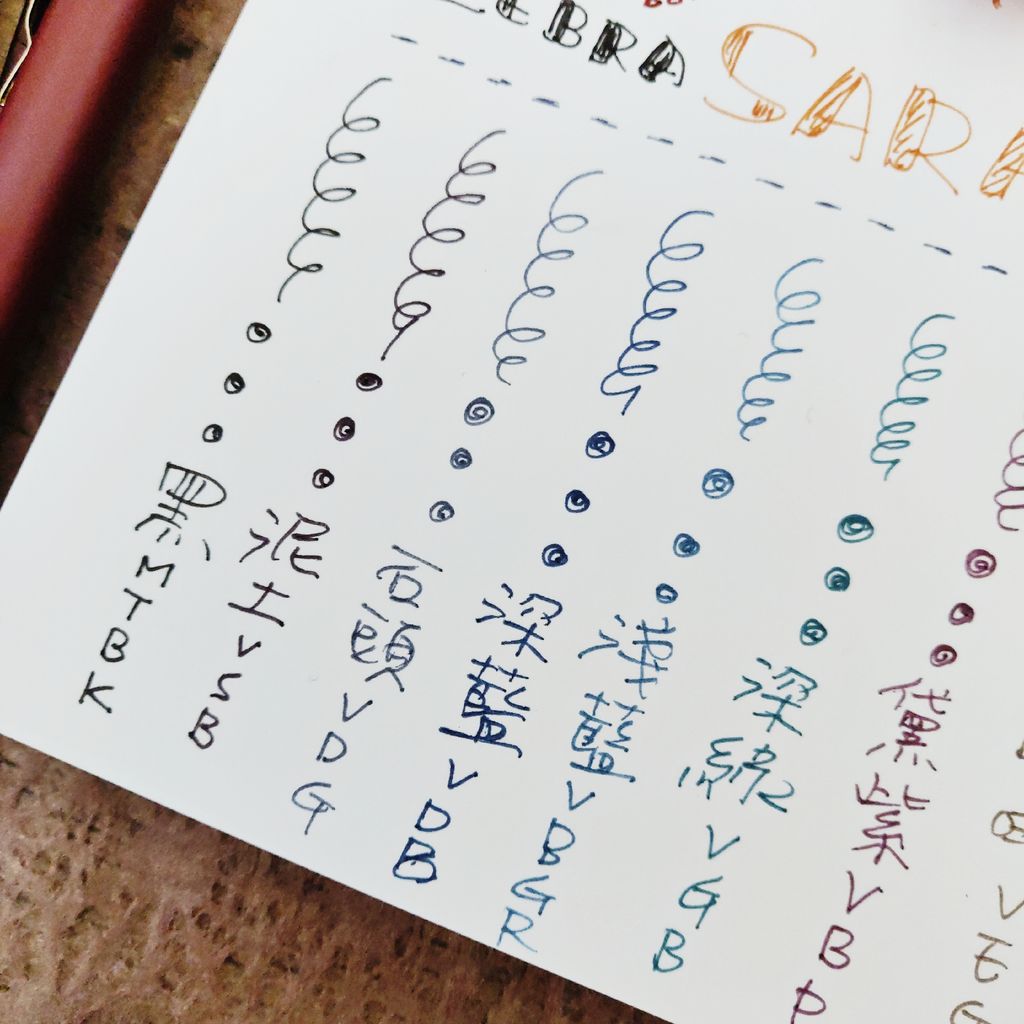 ZEBRA SARA
黑 MTBK
泥土 VSB
石頭 VDG
深藍 VDB
淺藍 VBGR
深綠 VGB
黛紫 VBP